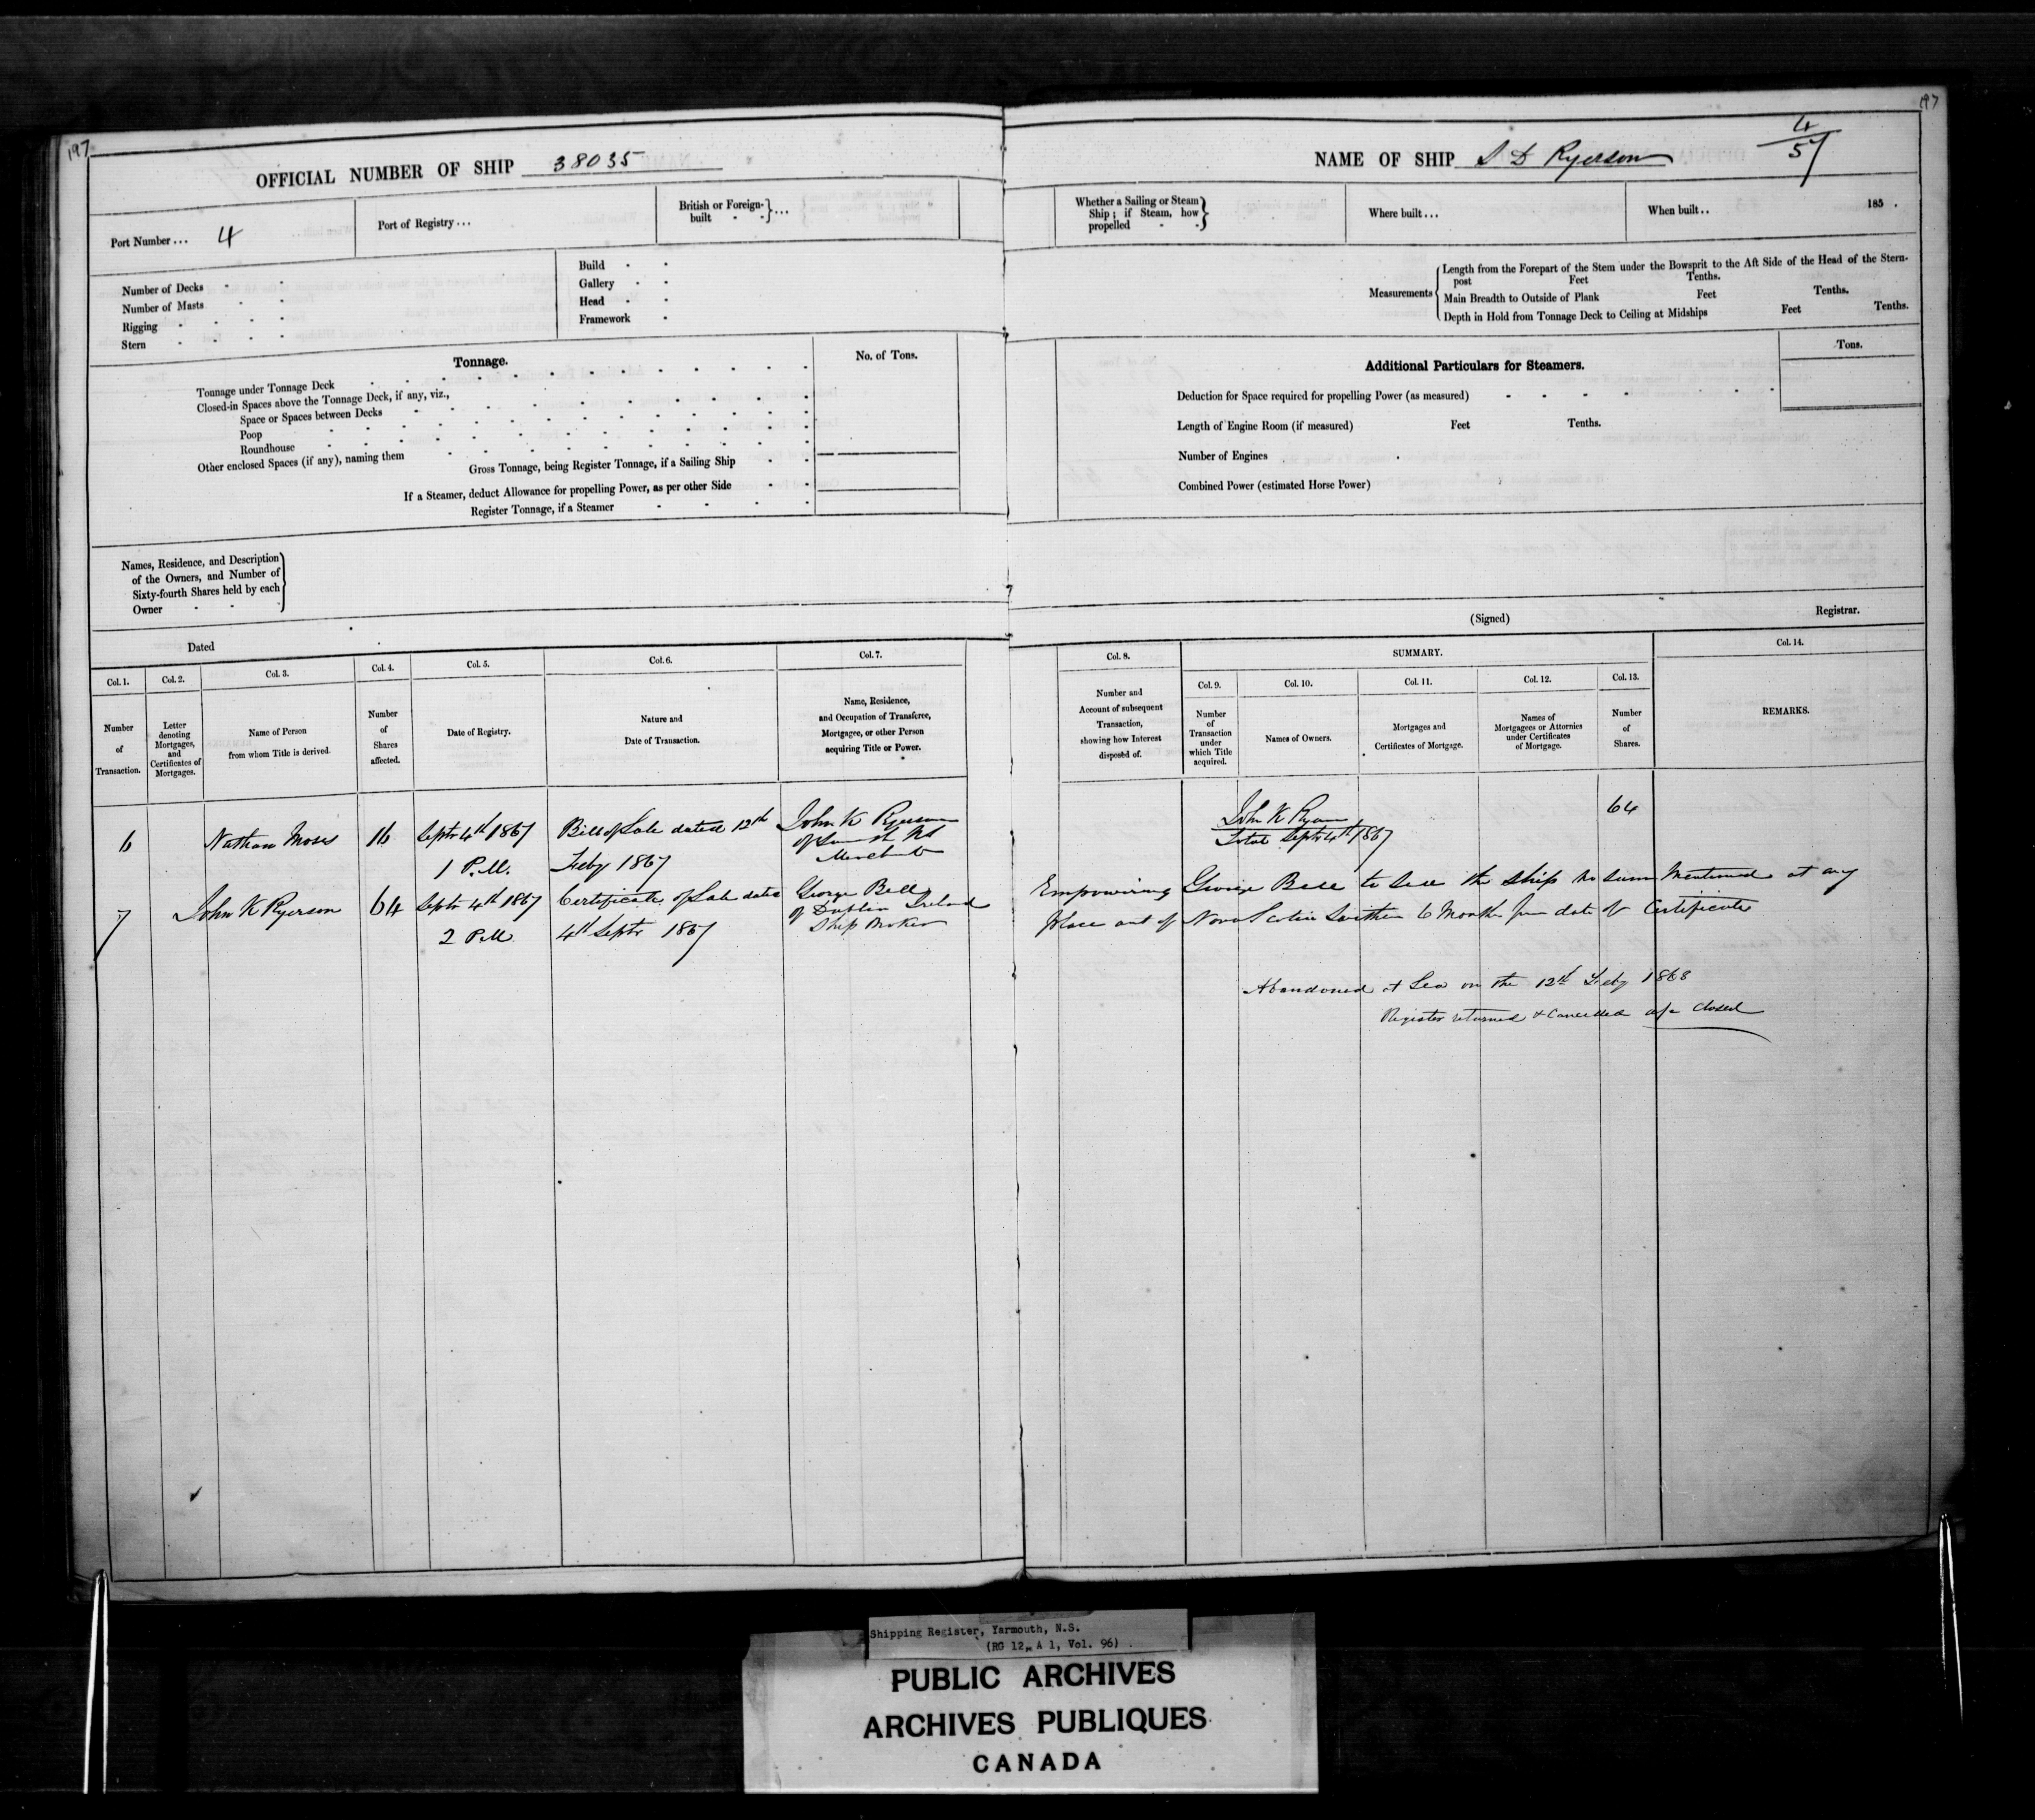 197
OFFICIAL NUMBER OF SHIP 38035
Port Number ... 4
Port of Registry ...
British or Foreign-
built - - } ...
Number of Decks
Number of Masts
Rigging
Stern
Build
Gallery
Head
Framework
Tonnage.
No. of Tons.
Tonnage under Tonnage Deck
Closed-in Spaces above the Tonnage Deck, if any, viz.,
Space or Spaces between Decks
Poop
Roundhouse
Other enclosed Spaces (if any), naming them
Gross Tonnage, being Register Tonnage, if a Sailing Ship
If a Steamer, deduct Allowance for propelling Power, as per other Side
Register Tonnage, if a Steamer
Names, Residence, and Description
of the Owners, and Number of
Sixty-fourth Shares held by each
Owner
Dated
Col. 1.
Number
of
Transaction.
Col. 2.
Letter
denoting
Mortgages,
and
Certificates of
Mortgages.
Col. 3.
Name of Person
from whom Title is derived.
Col. 4.
Number
of
Shares
affected.
Col. 5.
Date of Registry.
Col. 6.
Nature and
Date of Transaction.
Col. 7.
Name, Residence,
and Occupation of Transferee,
Mortgagee, or other Person
acquiring Title or Power.
6 Nathan Moses 16 Septr 4th 1867 Bill of Sale dated 12th John K Ryerson
1 P.M. Feby 1867 Merchant
7 John K Ryerson 64 Septr 4th 1867 Certificate of Sale dated George Bell
of Dublin Ireland
2 P.M. 4th Septr 1867 Ship Broker
197
NAME OF SHIP S D Ryerson
4/57
Whether a Sailing or Steam
Ship; if Steam, how
propelled
Where built ...
When built .. 185 .
Measurements
Length from the Forepart of the Stem under the Bowsprit to the Aft Side of the Head of the Stern-
post Feet Tenths.
Main Breadth to Outside of Plank Feet Tenths.
Depth in Hold from Tonnage Deck to Ceiling at Midships Feet Tenths.
Additional Particulars for Steamers.
Tons.
Deduction for Space required for propelling Power (as measured)
Length of Engine Room (if measured) Feet Tenths.
Number of Engines
Combined Power (estimated Horse Power)
(Signed) Registrar.
Col. 8.
Number and
Account of subsequent
Transaction,
showing how Interest
disposed of.
SUMMARY.
Col. 9.
Number
of
Transaction
under
which Title
acquired.
Col. 10.
Names of Owners.
Col. 11.
Mortgages and
Certificates of Mortgage.
Col. 12.
Names of
Mortgagees or Attornies
under Certificates
of Mortgage.
Col. 13.
Number
of
Shares.
Col. 14.
REMARKS.
John K Ryerson 64
Total Septr 4th 1867
Empowering George Bell to Sell the Ship no sum Mentioned at any
place out of Nova Scotia within 6 Months from date of Certificate
Abandoned at Sea on the 12th Feby 1868
Register returned & Cancelled a/c closed
Shipping Register, Yarmouth, N.S.
(RG 12, A 1, Vol. 96)
PUBLIC ARCHIVES
ARCHIVES PUBLIQUES
CANADA